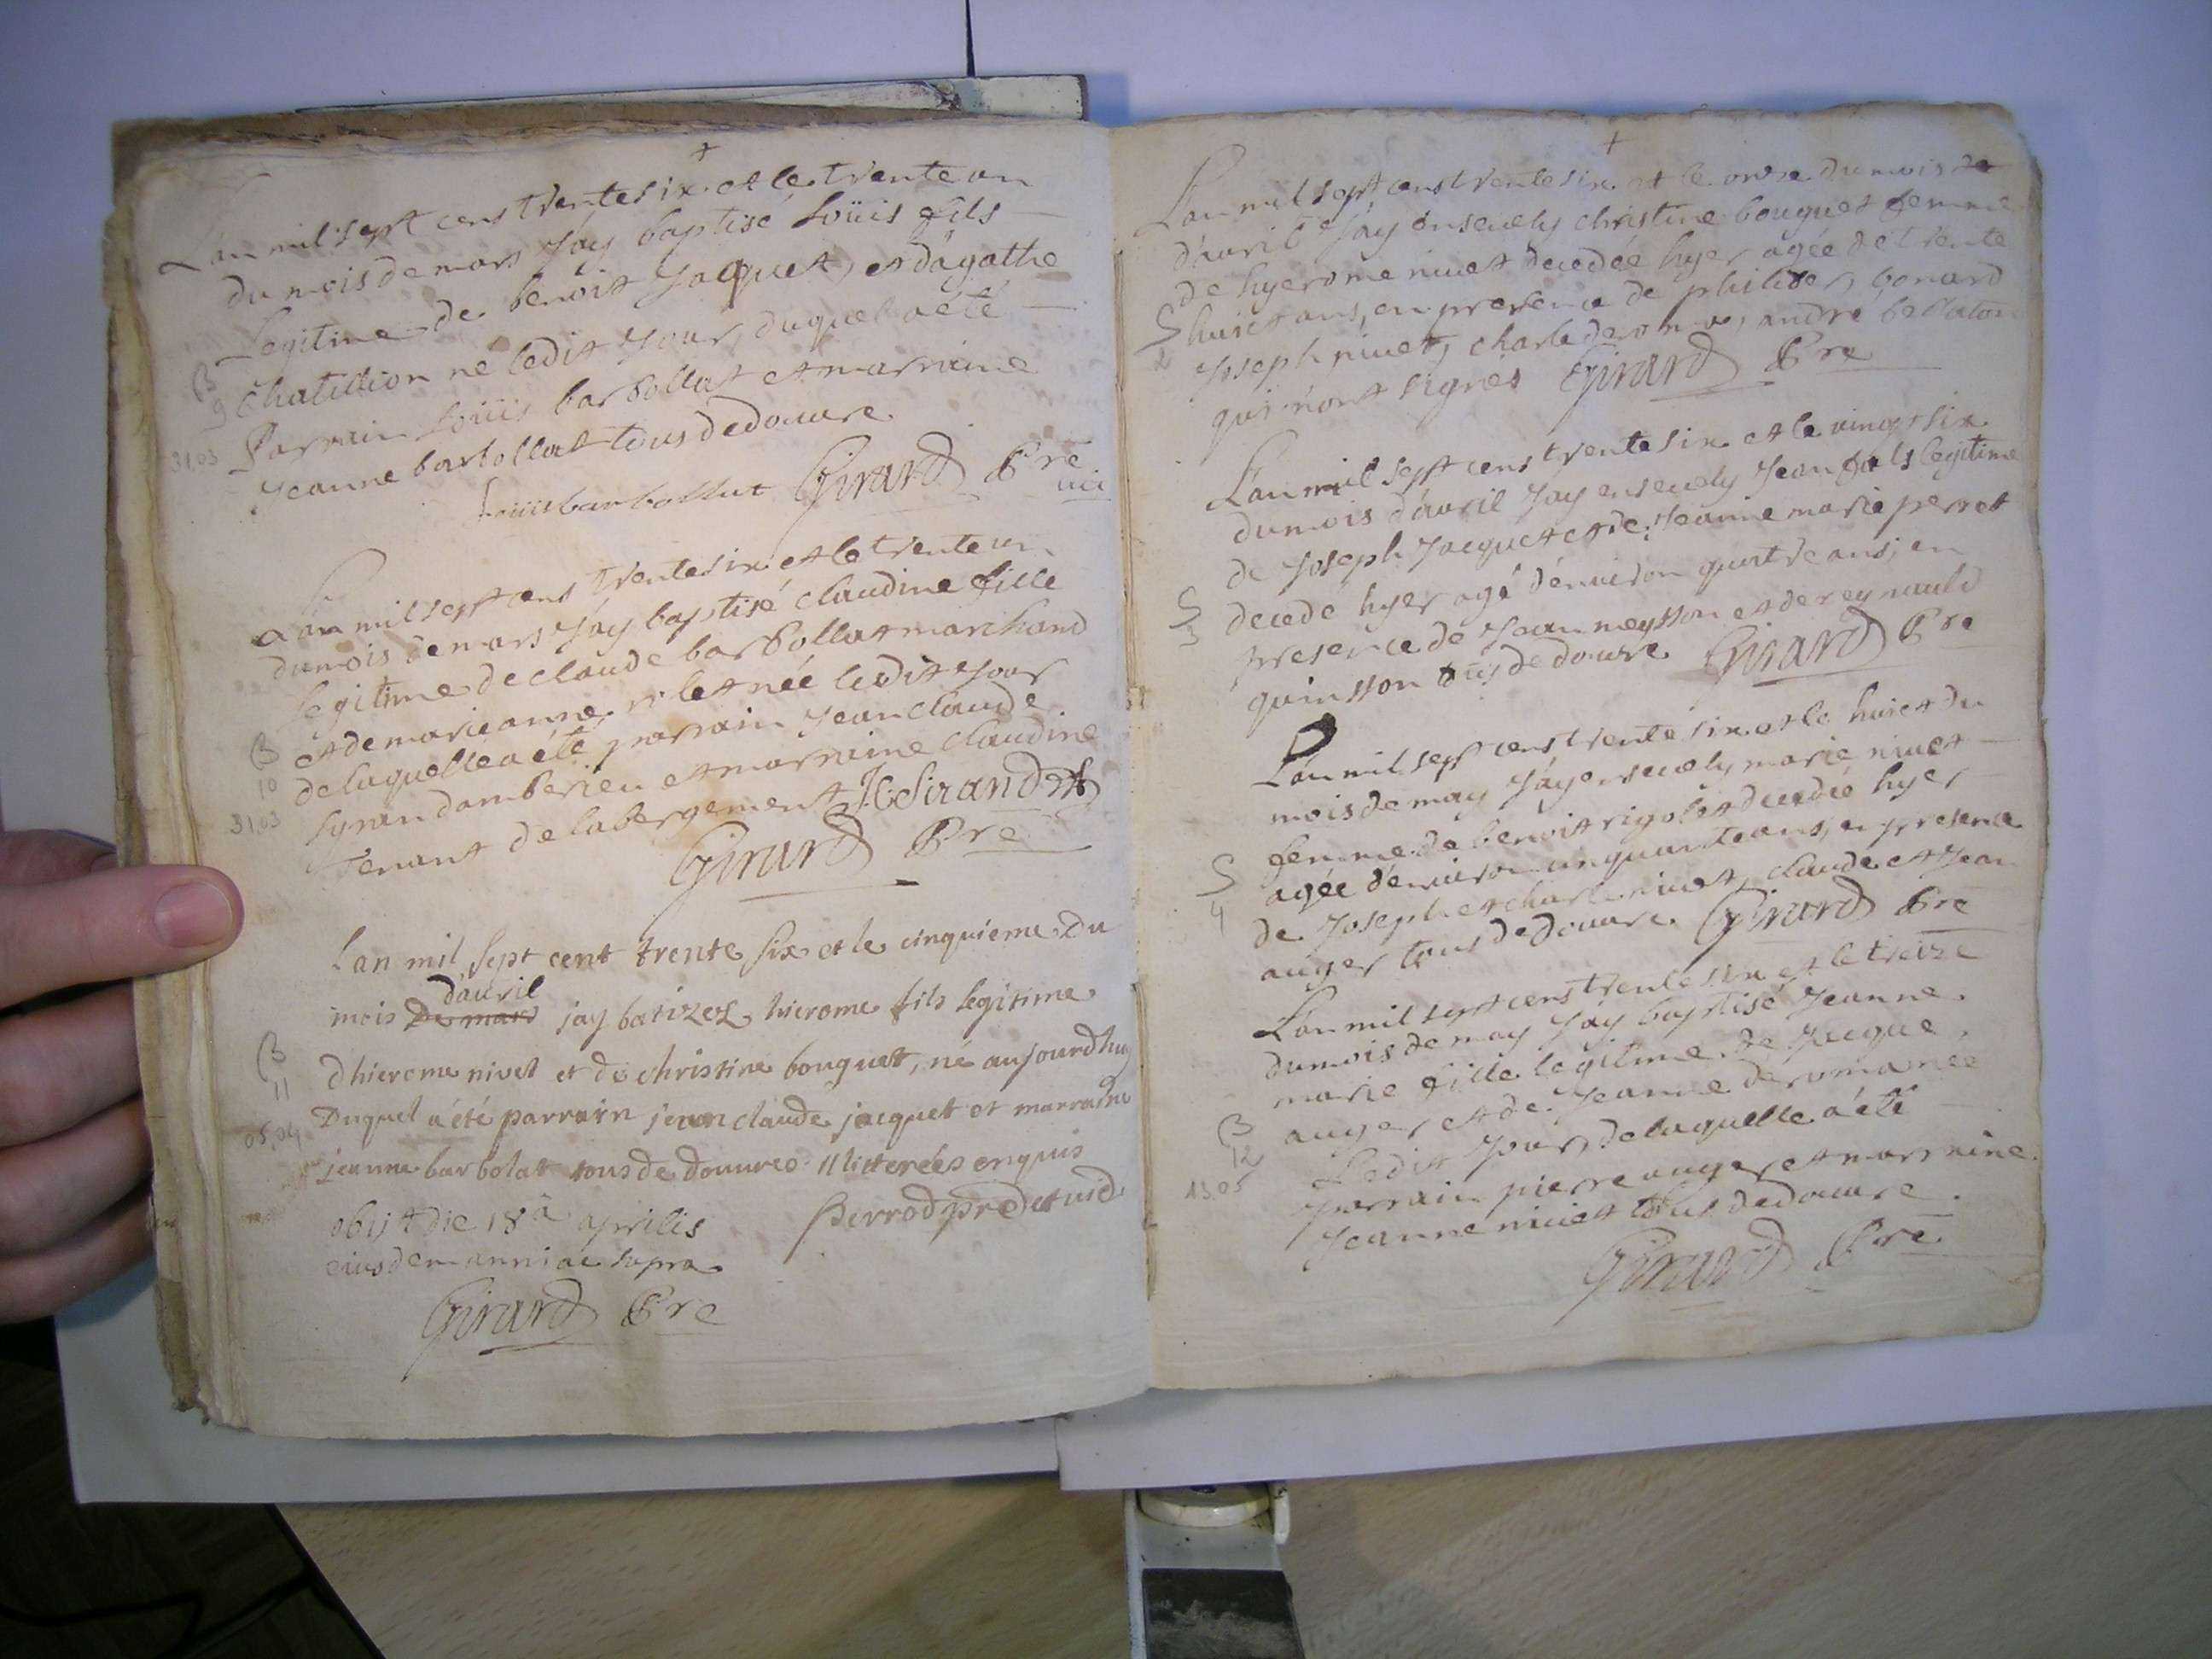 +
L'an mil sept cens trente six et le trente un
du mois de mars J'ay baptisé Loüis fils
Legitime de benoit Jacquet, et d'agathe
Chatillion né ledit Jour, duquel a été
Parrain Loüis barbollat et marraine
Jeanne barbollat tous de douvre
Loüis barbollat Girard Pre
vic
B
9
31.03
L'an mil sept cens trente six et le trente un
du mois de mars J'ay baptisé claudine fille
legitime de claude barbollat marchand
et de marie anne nilet née ledit Jour
de laquelle a été parrain Jean claude
Syran damberieu et marraine claudine
Tenant de labergement J:C: Sirand
Girard Pre
B
10
31.03
Lan mil sept cent trente six et le cinquieme Du
d'avril
mois De mars jay batizez hierome fils legitime
dhierome nivet et de christine bouquet, né aujourdhuy
Duquel a été parrain jean claude jacquet et marraine
jeanne barbolat tous de douvres illitterées enquis
Perrod pre et vic
obijt die 18a aprilis
eiusdem anni ac supra
Girard Pre
B
11
05.04
+
L'an mil sept cens trente six et le onze du mois de
d'avril J'ay ensevely christine bouquet femme
de hyerome nivet decedée hyer agée de trente
huict ans, en presence de philiber bonard
Joseph nivet, charle, andré
qui n'ont signés Girard Pre
S
2
L'an mil sept cens trente six et le vingt six
du mois d'avril J'ay ensevely Jean fils legitime
de Joseph Jacquet et de Jeanne marie perret
decedé hyer agé d'environ quatre ans, en
presence de Jean neysson et de reynauld
quinsson tous de douvre Girard Pre
S
3
L'an mil sept cens trente six et le huict du
mois de may J'ay ensevely marie nivet
femme de benoit rigolet decedée hyer
agée d'environ cinquante ans, en presence
de Joseph et charle nivet, claude et Jean
auger tous de douvre. Girard Pre
S
4
L'an mil sept cens trente six et le treize
du mois de may J'ay baptisé Jeanne
marie fille legitime de Jacque
auger et de Jeanne deromanée
Ledit Jour, de laquelle a été
parrain pierre auger et marraine
Jeanne nivet tous de douvre.
Girard Pre
B
12
13.05